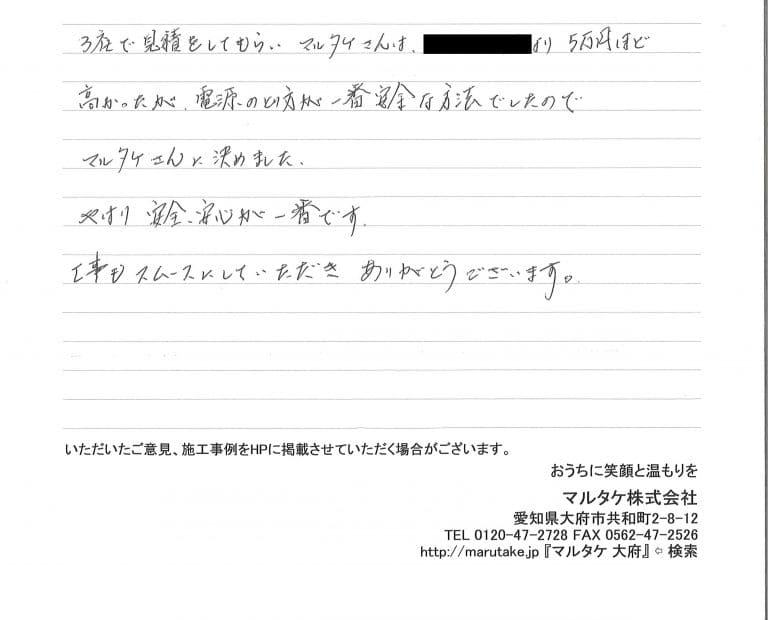 3社で見積をしてもらい マルタケさんは、より 5万円ほど
高かったが、電源のとり方が一番安全な方法でしたので
マルタケさんに決めました。
やはり 安全、安心が一番です。
工事もスムースにしていただき ありがとうございます。
いただいたご意見、施工事例をHPに掲載させていただく場合がございます。
おうちに笑顔と温もりを
マルタケ株式会社
愛知県大府市共和町2-8-12
TEL 0120-47-2728 FAX 0562-47-2526
http://marutake.jp『マルタケ 大府』⇦ 検索